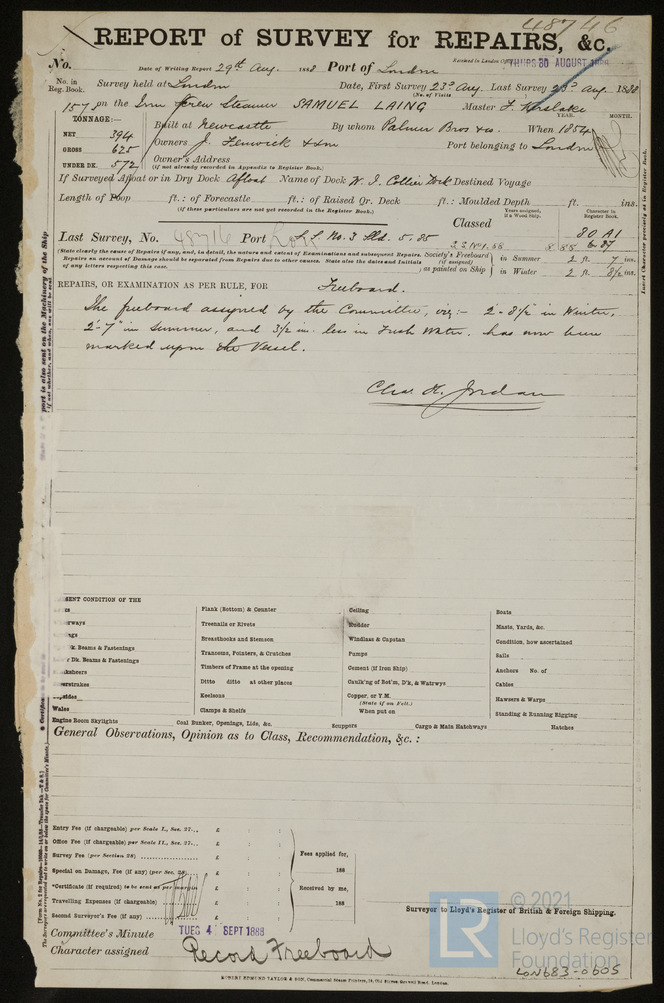 48746
REPORT of SURVEY for REPAIRS, &c.
No. Date of Writing Report 29th Aug. 1888 Port of London Received in London Office THURS 30 AUGUST 1888
No. in Reg. Book. Survey held at London Date, First Survey 23d Aug. Last Survey 23d Aug. 1888
(No. of Visits
1578 on the Iron Screw Steamer SAMUEL LAING Master F. Kerslake
TONNAGE:— YEAR. MONTH.
NET 394 Built at Newcastle By whom Palmer Bros & Co. When 1854
GROSS 625 Owners J. Fenwick & Son Port belonging to London
UNDER DK. 572 Owner's Address
(if not already recorded in Appendix to Register Book.)
If Surveyed Afloat or in Dry Dock Afloat Name of Dock W. I. Collier Dock Destined Voyage
Length of Poop ft.: of Forecastle ft.: of Raised Qr. Deck ft.: Moulded Depth ft. ins.
(if these particulars are not yet recorded in the Register Book.)
Years assigned, if a Wood Ship. Character in Register Book.
Classed
Last Survey, No. 48716 Port Lon S.S. No. 3 Sld. 5.85 80 A1
S.S. No 1. 88 8.85 6.87
(State clearly the cause of Repairs if any, and, in detail, the nature and extent of Examinations and subsequent Repairs.
Repairs on account of Damage should be separated from Repairs due to other causes. State also the dates and Initials
of any letters respecting this case.
Society's Freeboard (if assigned) as painted on Ship
in Summer 2 ft. 7 ins.
in Winter 2 ft. 8½ ins.
REPAIRS, OR EXAMINATION AS PER RULE, FOR Freeboard.
The freeboard assigned by the Committee, viz:- 2'-8½" in Winter,
2'-7" in Summer, and 3½ in. less in Fresh Water. has now been
marked upon the Vessel.
Chas. H. Jordan
PRESENT CONDITION OF THE
Dk. Beams & Fastenings
Dk. Beams & Fastenings
Wales
Engine Room Skylights
Plank (Bottom) & Counter
Treenails or Rivets
Breasthooks and Stemson
Transoms, Pointers, & Crutches
Timbers of Frame at the opening
Ditto ditto at other places
Keelsons
Clamps & Shelfs
Coal Bunker, Openings, Lids, &c.
Ceiling
Rudder
Windlass & Capstan
Pumps
Cement (if Iron Ship)
Caulk'ng of Bot'm, D'k, & Watrwys
Copper, or Y.M.
(State if on Felt.)
When put on
Scuppers
Cargo & Main Hatchways
Boats
Masts, Yards, &c.
Condition, how ascertained
Sails
Anchors No. of
Cables
Hawsers & Warps
Standing & Running Rigging
Hatches
General Observations, Opinion as to Class, Recommendation, &c. :
Entry Fee (if chargeable) per Scale I., Sec. 27... £ : :
Office Fee (if chargeable) per Scale II., Sec. 27... £ : :
Survey Fee (per Section 28) £ : :
Special on Damage, Fee (if any) (per Sec. 28) £ : :
*Certificate (if required) to be sent as per margin £ : :
Travelling Expenses (if chargeable) £ : :
Second Surveyor's Fee (if any) £ : :
Fees applied for,
188
Received by me,
188
Surveyor to Lloyd's Register of British & Foreign Shipping.
Committee's Minute TUES 4 SEPT 1888
Character assigned Record Freeboard
LR
© 2021
Lloyd's Register
Foundation
LON683-0605
ROBERT EDMUND TAYLOR & SON, Commercial Steam Printers, 19, Old Street, Goswell Road, London.